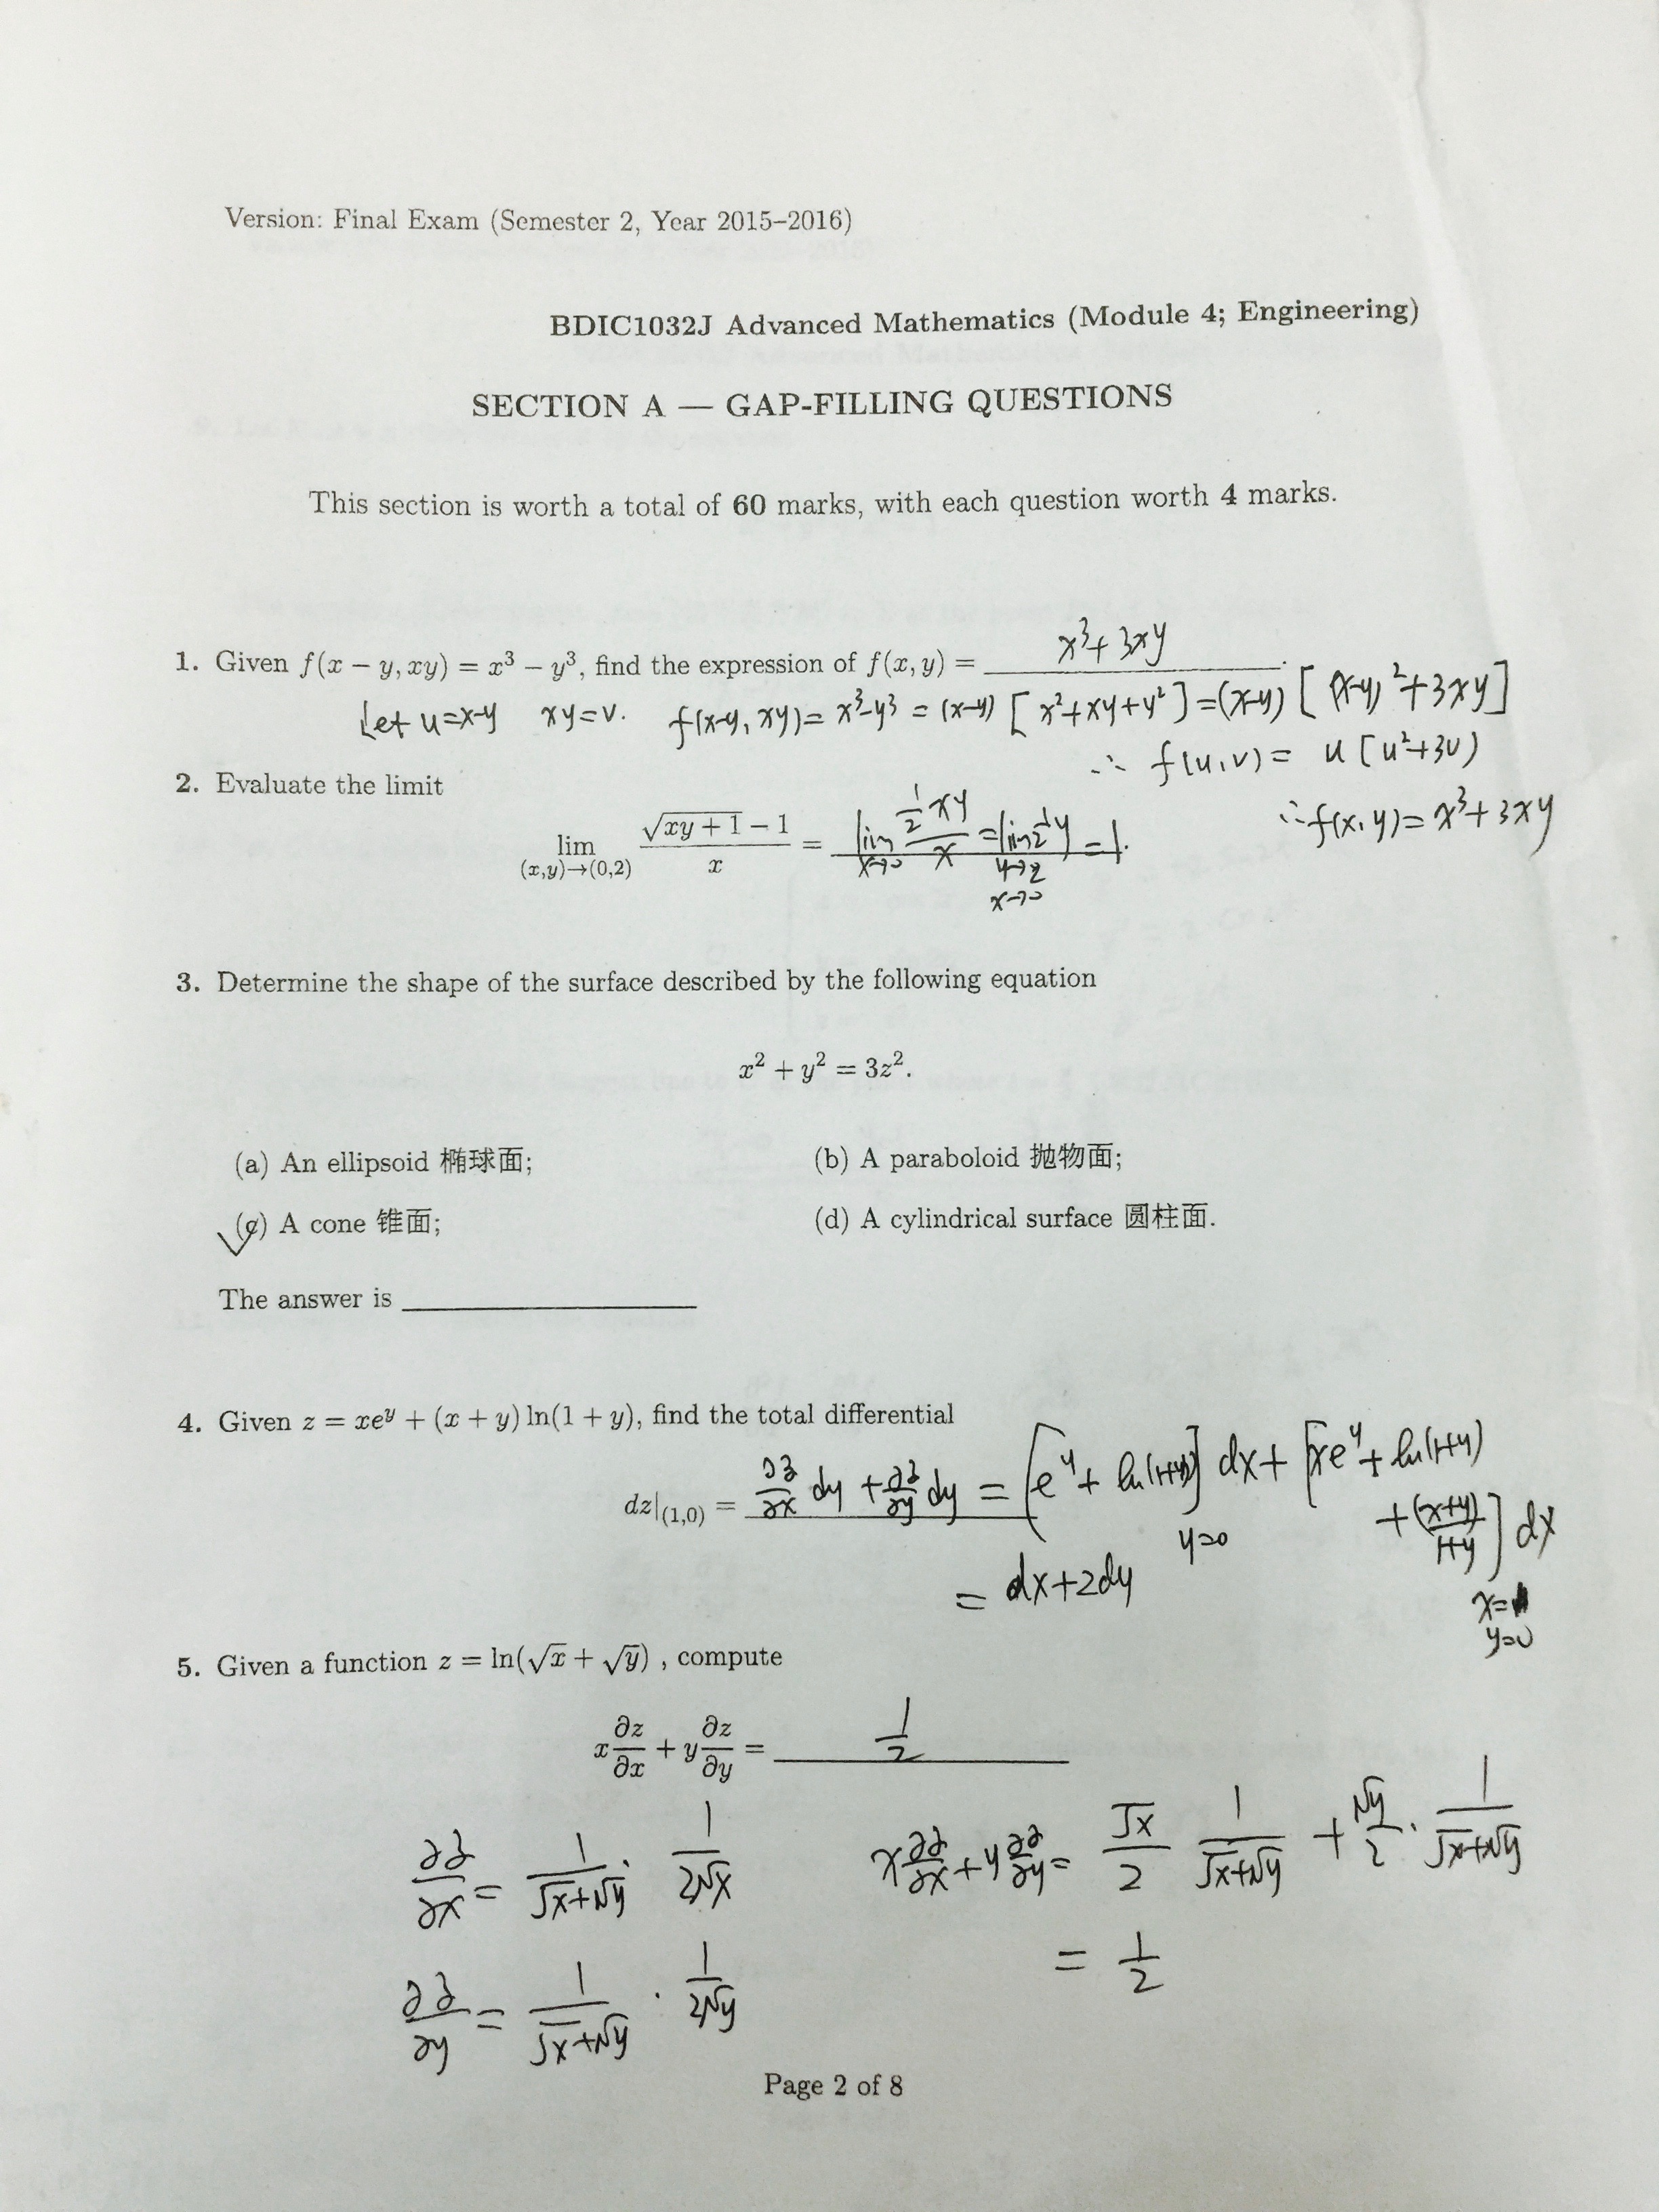 Version: Final Exam (Semester 2, Year 2015–2016)
BDIC1032J Advanced Mathematics (Module 4; Engineering)
SECTION A — GAP-FILLING QUESTIONS
This section is worth a total of 60 marks, with each question worth 4 marks.
1. Given f(x − y, xy) = x³ − y³, find the expression of f(x, y) = x³+3xy.
Let u=x-y xy=v. f(x-y, xy)= x³-y³ = (x-y) [x²+xy+y²]=(x-y) [(x-y)²+3xy]
∴ f(u,v)= u[u²+3v)
2. Evaluate the limit
∴f(x,y)=x³+3xy
lim (x,y)→(0,2) (√(xy + 1) − 1)/x = lim x→0 (½xy)/x = lim y→2 x→0 ½y = 1.
3. Determine the shape of the surface described by the following equation
x² + y² = 3z².
(a) An ellipsoid 椭球面; (b) A paraboloid 抛物面;
(c) A cone 锥面; (d) A cylindrical surface 圆柱面.
The answer is
4. Given z = xe^y + (x + y) ln(1 + y), find the total differential
dz|(1,0) = ∂z/∂x dy + ∂z/∂y dy = [e^y + ln(1+y)] dx + [xe^y + ln(1+y)
y=0 + (x+y)/(1+y)] dx
= dx+2dy x=1
y=0
5. Given a function z = ln(√x + √y) , compute
x ∂z/∂x + y ∂z/∂y = 1/2
∂z/∂x = 1/(√x+√y) · 1/(2√x) x ∂z/∂x + y ∂z/∂y = √x/2 1/(√x+√y) + √y/2 · 1/(√x+√y)
= 1/2
∂z/∂y = 1/(√x+√y) · 1/(2√y)
Page 2 of 8